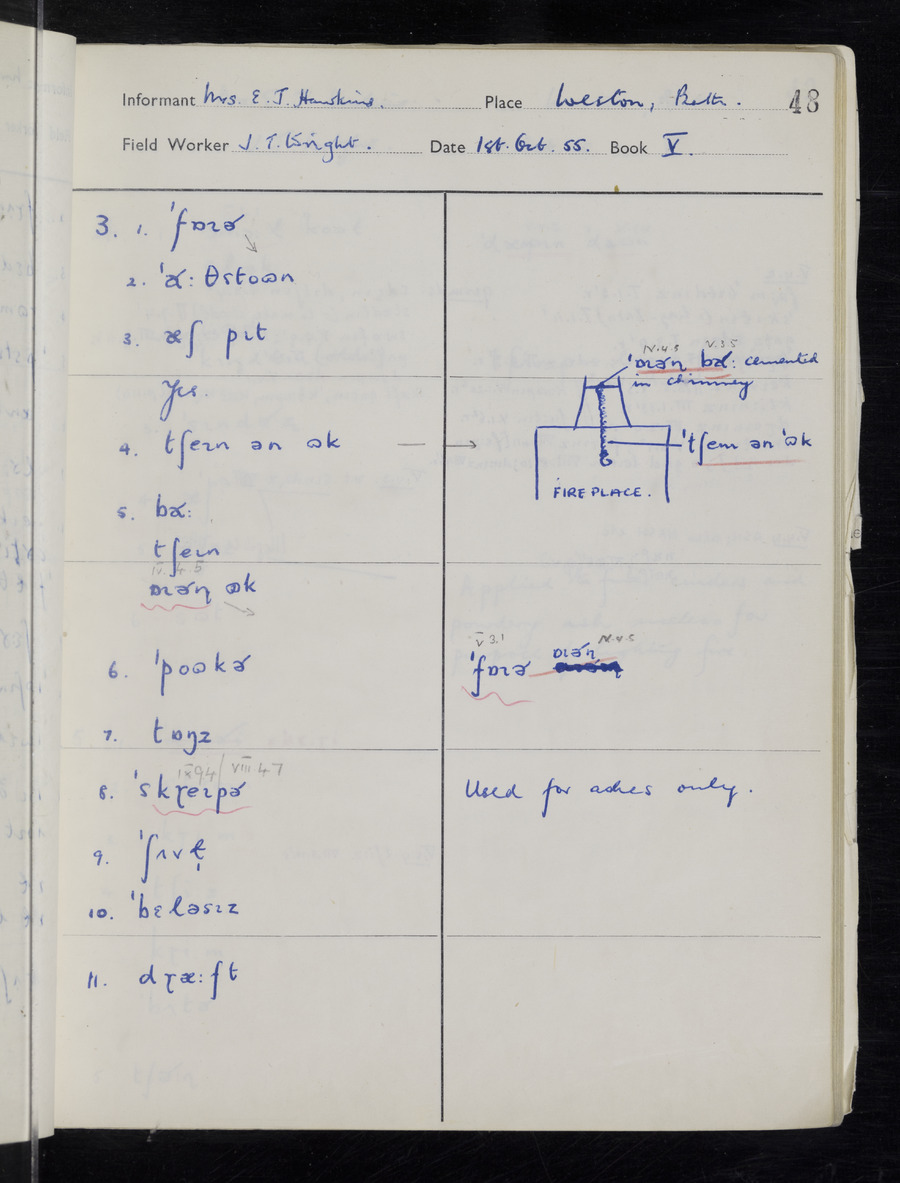 Informant Mrs. E. J. Hawkins. Place Weston, Bath. 48
Field Worker J. T. Wright. Date 1st. Oct. 55. Book V.
3. 1. ˈfɒɪɚ
2. ˈɑ˞: θstoʊn
3. æʃ pɪt
Yes.
4. tʃeɪn ən ʊk
5. bɑ˞:
tʃeɪn
IV. 4. 5
ɒɪɚn̩ ʊk
6. ˈpoʊkɚ
7. tɒŋz
IX 9 4 / VIII 4 7
8. ˈskɽeɪpɚ
9. ˈʃʌvɫ̩
10. ˈbɛləsɪz
11. dɽæ:ft
IV. 4. 5 V. 3. 5
ˈɒɪɚn̩ bɑ˞: cemented
in chimney
ˈtʃeɪn ən ˈʊk
FIREPLACE.
V 3.1 IV. 4. 5
ˈfɒɪɚ ɒɪɚn̩
Used for ashes only.